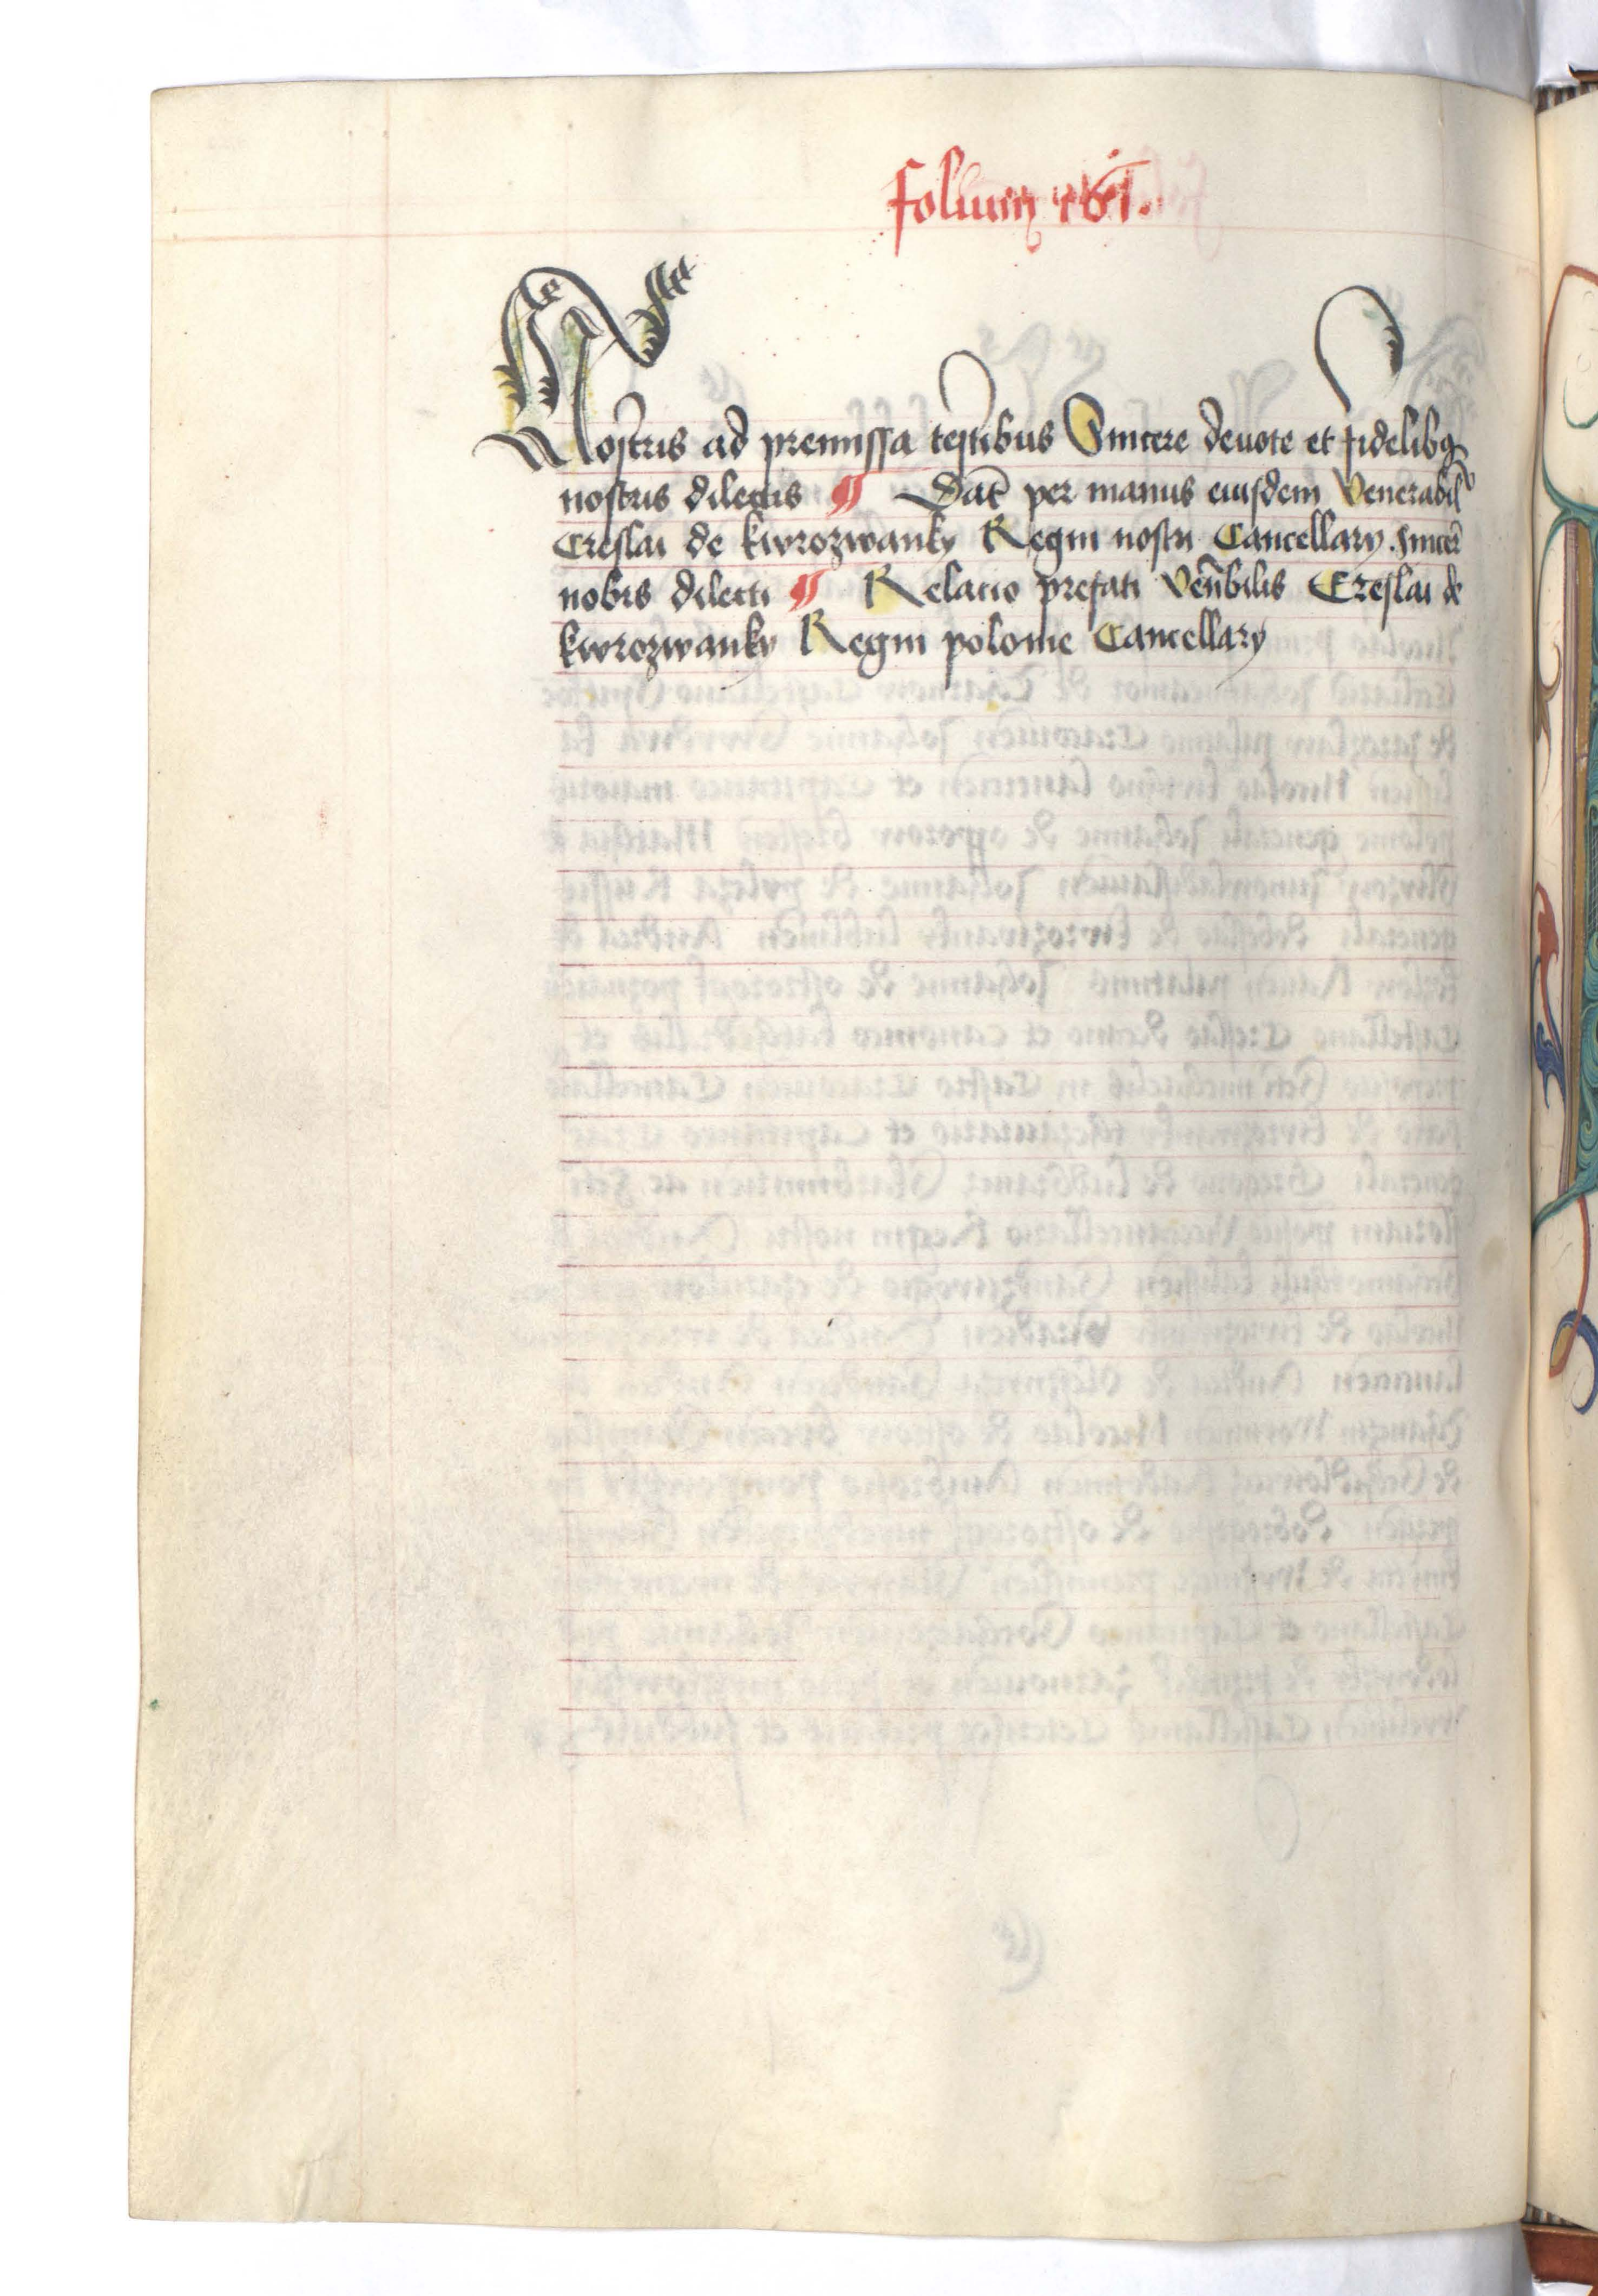 folium 161.
Nostris ad premissa testibus Sincere devote et fidelibꝫ
nostris dilectis ¶ Dat̄ per manus eiusdem Venerabil̄
Creslai de kwrozwanky Regni nostri Cancellary. sincer̄
nobis dilecti ¶ Relacio prefati Ven̄bilis Creslai de
kwrozwanky Regni polonie Cancellary